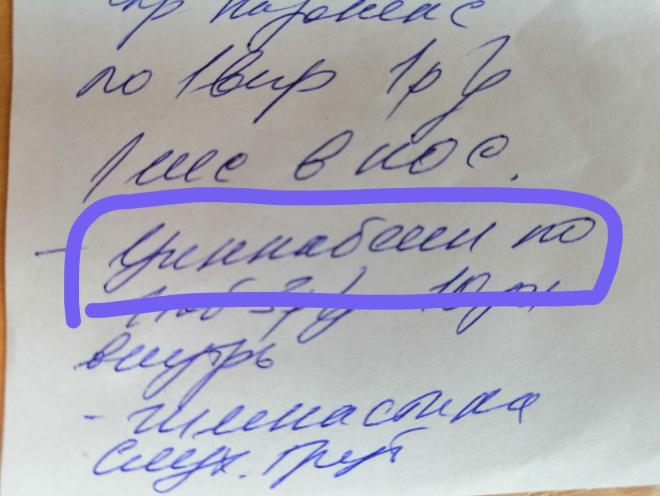 спр назонекс
по 1 впр 1 р/д
1 мес в нос.
- Циннабсин по
1 таб 3 р/д 10 дн
внутрь
- гимнастика
слух. труб